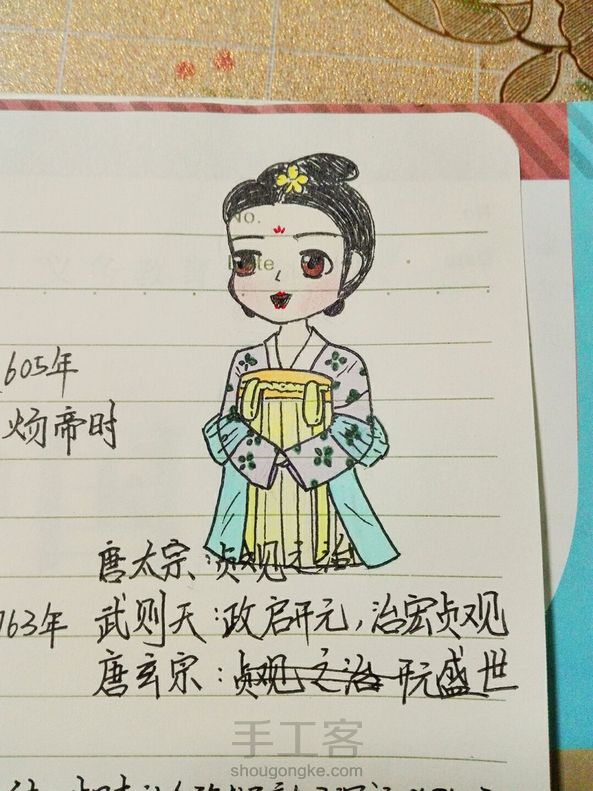 No.
Date
605年
炀帝时
唐太宗：贞观之治
763年 武则天：政启开元，治宏贞观
唐玄宗：贞观之治 开元盛世
手工客
shougongke.com